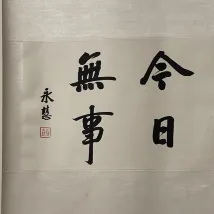 今日
無事
永慧